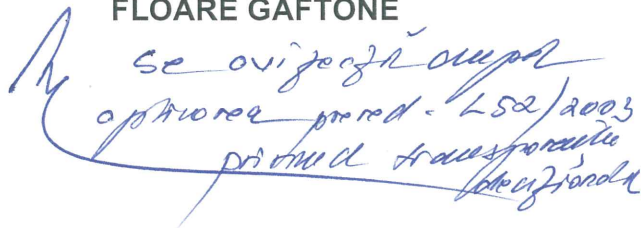 FLOARE GAFTONE
se avizează după
aplicarea preved. L52/2003
privind transparența
decizională